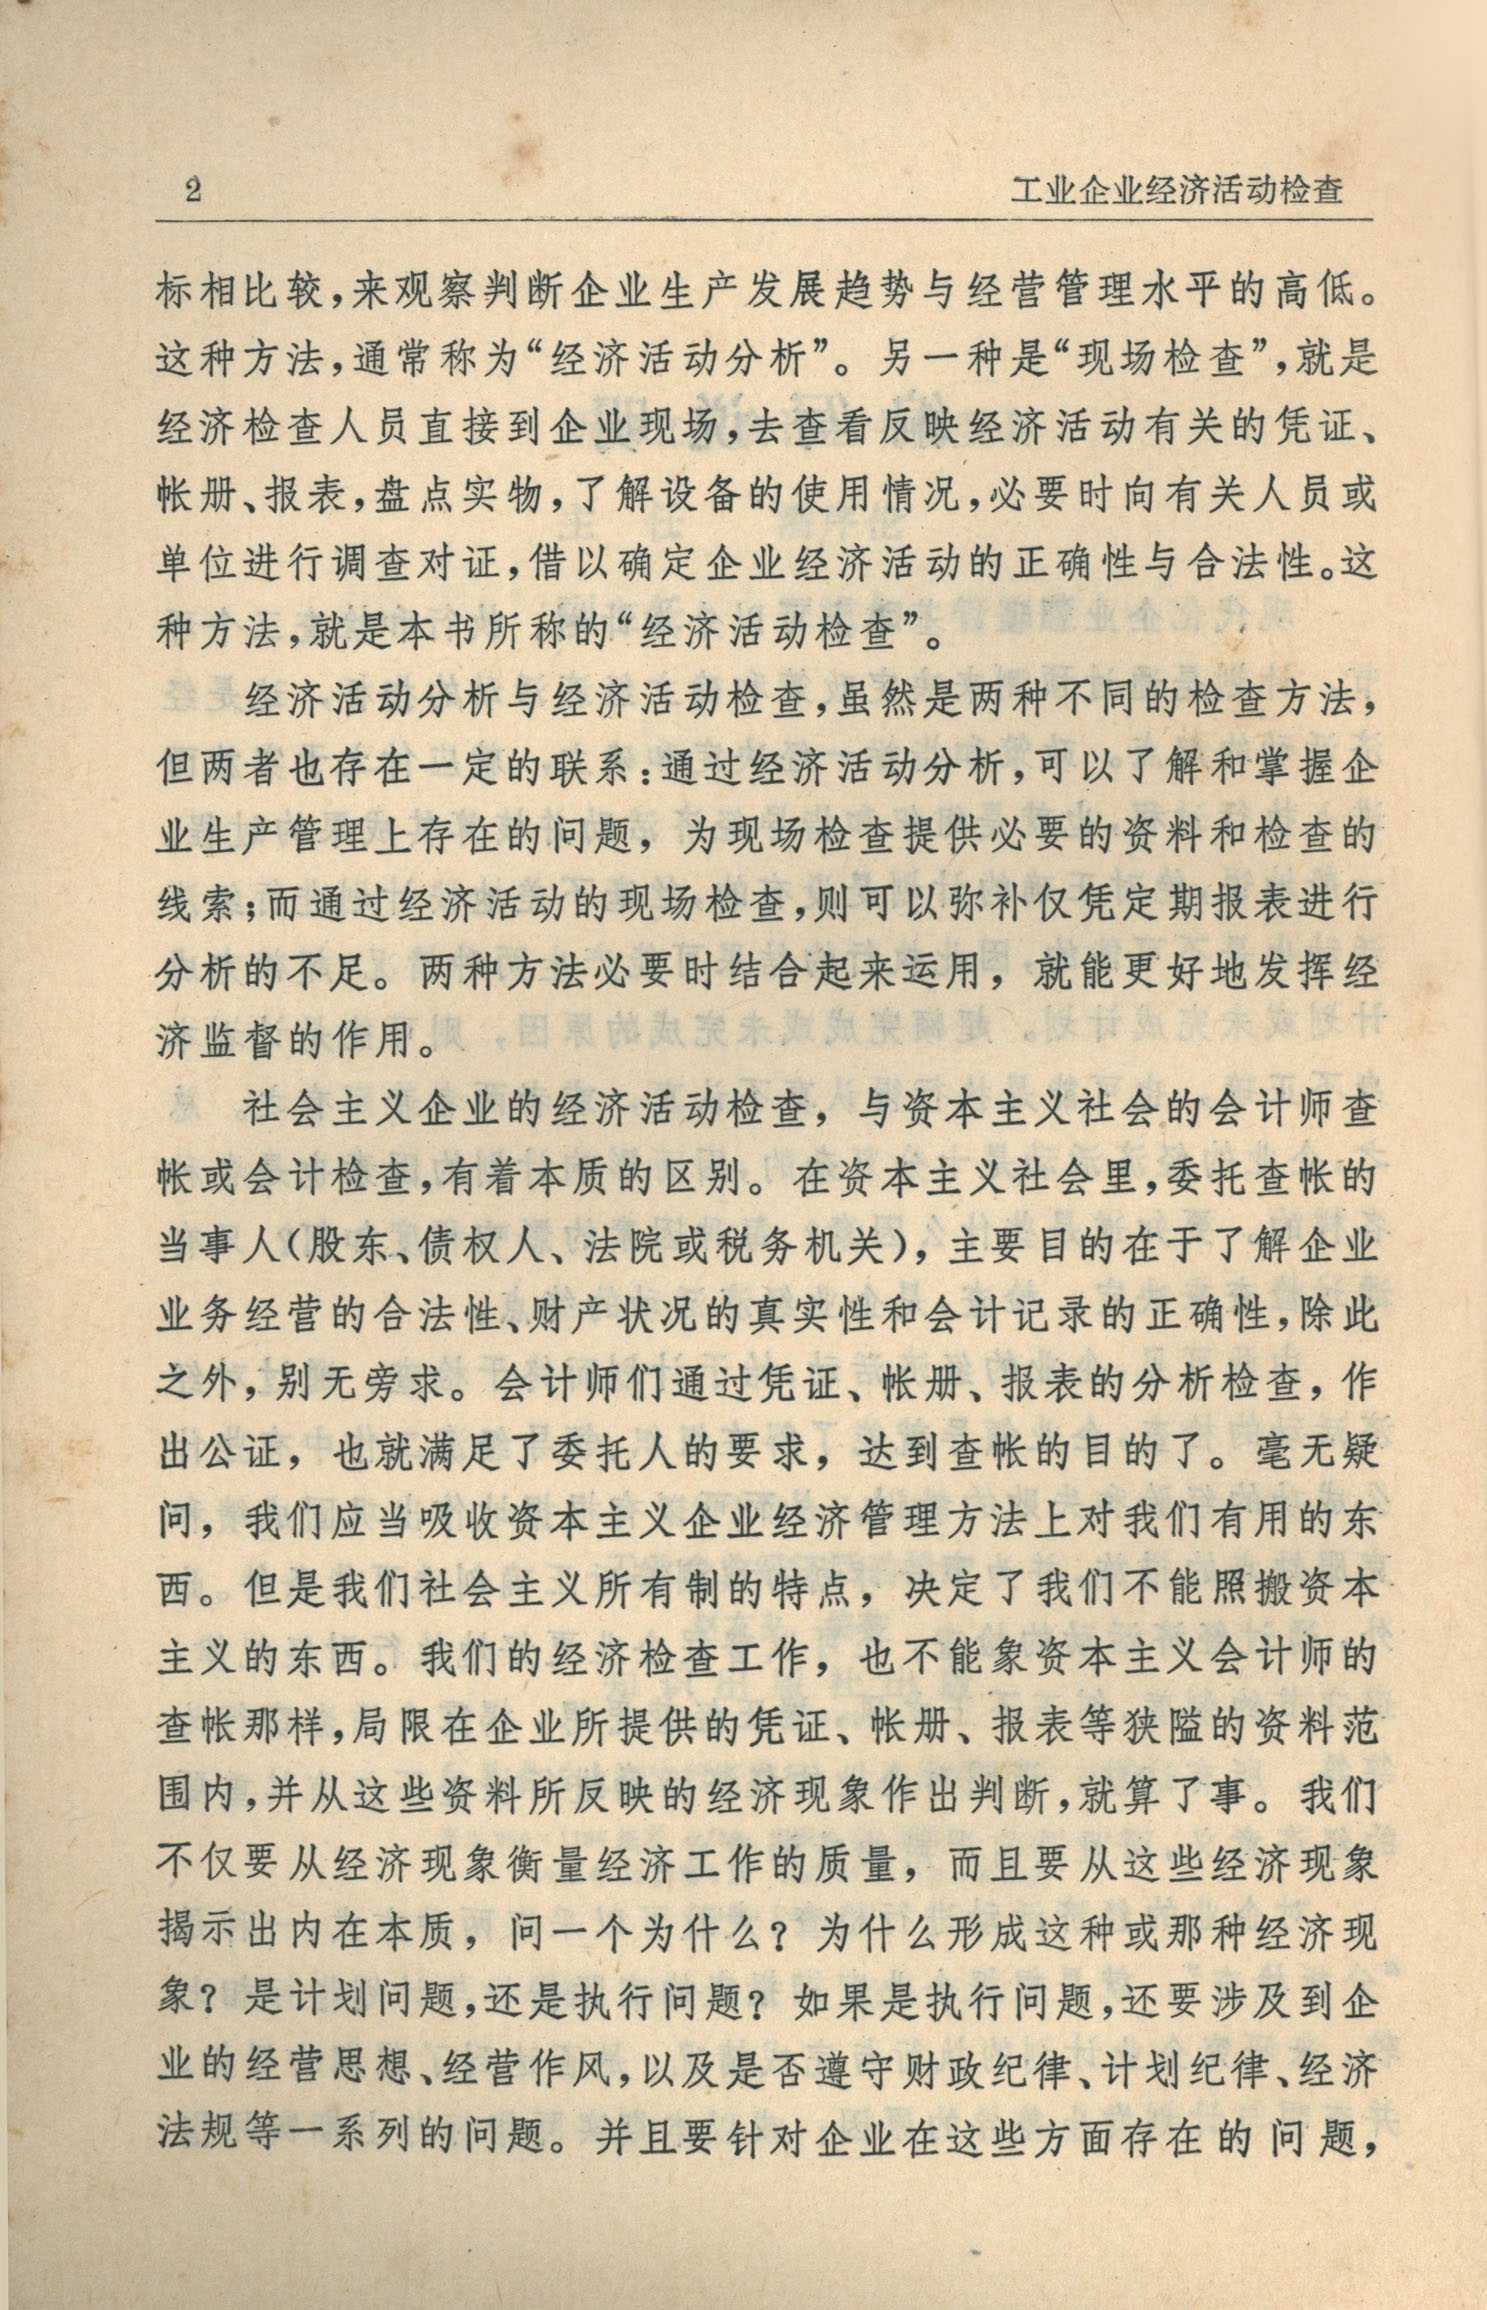 2
工业企业经济活动检查
标相比较，来观察判断企业生产发展趋势与经营管理水平的高低。
这种方法，通常称为“经济活动分析”。另一种是“现场检查”，就是
经济检查人员直接到企业现场，去查看反映经济活动有关的凭证、
帐册、报表，盘点实物，了解设备的使用情况，必要时向有关人员或
单位进行调查对证，借以确定企业经济活动的正确性与合法性。这
种方法，就是本书所称的“经济活动检查”。
经济活动分析与经济活动检查，虽然是两种不同的检查方法，
但两者也存在一定的联系：通过经济活动分析，可以了解和掌握企
业生产管理上存在的问题，为现场检查提供必要的资料和检查的
线索；而通过经济活动的现场检查，则可以弥补仅凭定期报表进行
分析的不足。两种方法必要时结合起来运用，就能更好地发挥经
济监督的作用。
社会主义企业的经济活动检查，与资本主义社会的会计师查
帐或会计检查，有着本质的区别。在资本主义社会里，委托查帐的
当事人（股东、债权人、法院或税务机关），主要目的在于了解企业
业务经营的合法性、财产状况的真实性和会计记录的正确性，除此
之外，别无旁求。会计师们通过凭证、帐册、报表的分析检查，作
出公证，也就满足了委托人的要求，达到查帐的目的了。毫无疑
问，我们应当吸收资本主义企业经济管理方法上对我们有用的东
西。但是我们社会主义所有制的特点，决定了我们不能照搬资本
主义的东西。我们的经济检查工作，也不能象资本主义会计师的
查帐那样，局限在企业所提供的凭证、帐册、报表等狭隘的资料范
围内，并从这些资料所反映的经济现象作出判断，就算了事。我们
不仅要从经济现象衡量经济工作的质量，而且要从这些经济现象
揭示出内在本质，问一个为什么？为什么形成这种或那种经济现
象？是计划问题，还是执行问题？如果是执行问题，还要涉及到企
业的经营思想、经营作风，以及是否遵守财政纪律、计划纪律、经济
法规等一系列的问题。并且要针对企业在这些方面存在的问题，